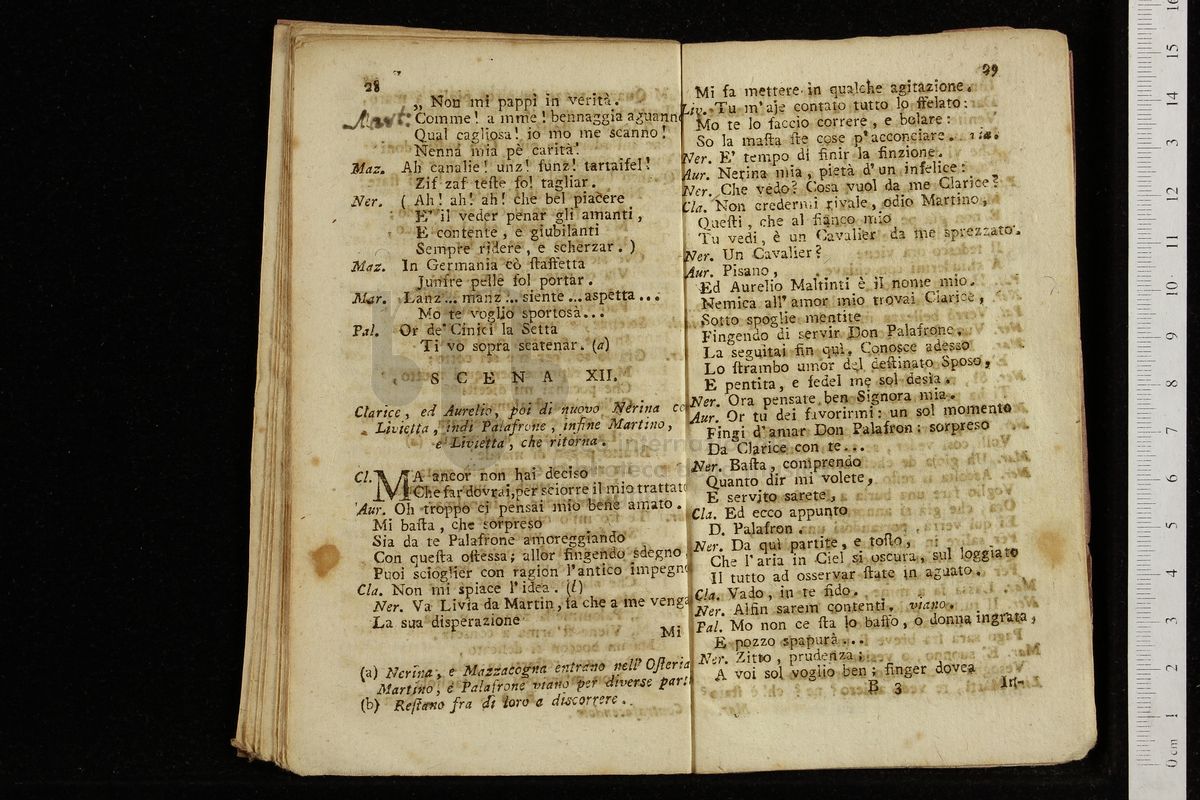 28
„ Non mi pappi in verità.
Mart: Comme! a mme! bennaggia aguanno
Qual cagliosa! io mo me scanno!
Nenna mia pè carità!
Maz. Ah canalie! unz! funz! tartaifel!
Zif zaf teste fol tagliar.
Ner. ( Ah! ah! ah! che bel piacere
E' il veder penar gli amanti,
E contente, e giubilanti
Sempre ridere, e scherzar. )
Maz. In Germania cò staffetta
Junire pelle fol portar.
Mar. Lanz... manz... siente... aspetta...
Mo te voglio sportosà...
Pal. Or de' Cinici la Setta
Ti vo sopra scatenar. (a)
SCENA XII.
Clarice, ed Aurelio, poi di nuovo Nerina co
Livietta, indi Palafrone, infine Martino,
e Livietta, che ritorna.
Cl. MA ancor non hai deciso
Che far dovrai, per sciorre il mio trattato
Aur. Oh troppo ci pensai mio bene amato.
Mi basta, che sorpreso
Sia da te Palafrone amoreggiando
Con questa ostessa; allor fingendo sdegno
Puoi scioglier con ragion l'antico impegno
Cla. Non mi spiace l'idea. (b)
Ner. Va Livia da Martin, fa che a me venga
La sua disperazione
Mi
(a) Nerina, e Mazzacogna entrano nell' Osteria
Martino, e Palafrone viano per diverse parti
(b) Restano fra di loro a discorrere.
29
Mi fa mettere in qualche agitazione.
Liv. Tu m'aje contato tutto lo ffelato:
Mo te lo faccio correre, e bolare:
So la masta ste cose p'acconciare. via.
Ner. E' tempo di finir la finzione.
Aur. Nerina mia, pietà d'un infelice:
Ner. Che vedo? Cosa vuol da me Clarice?
Cla. Non credermi rivale, odio Martino,
Questi, che al fianco mio
Tu vedi, è un Cavalier da me sprezzato.
Ner. Un Cavalier?
Aur. Pisano,
Ed Aurelio Maltinti è il nome mio.
Nemica all' amor mio trovai Clarice,
Sotto spoglie mentite
Fingendo di servir Don Palafrone.
La seguitai fin quì. Conosce adesso
Lo strambo umor del destinato Sposo,
E pentita, e fedel me sol desia.
Ner. Ora pensate ben Signora mia.
Aur. Or tu dei favorirmi: un sol momento
Fingi d'amar Don Palafron: sorpreso
Da Clarice con te...
Ner. Basta, comprendo
Quanto dir mi volete,
E servito sarete,
Cla. Ed ecco appunto
D. Palafron.
Ner. Da quì partite, e tosto,
Che l'aria in Ciel si oscura, sul loggiato
Il tutto ad osservar state in aguato.
Cla. Vado, in te fido.
Ner. Alfin sarem contenti. viano.
Pal. Mo non ce sta lo basso, o donna ingrata,
E pozzo spapurà...
Ner. Zitto, prudenza:
A voi sol voglio ben; finger dovea
B 3